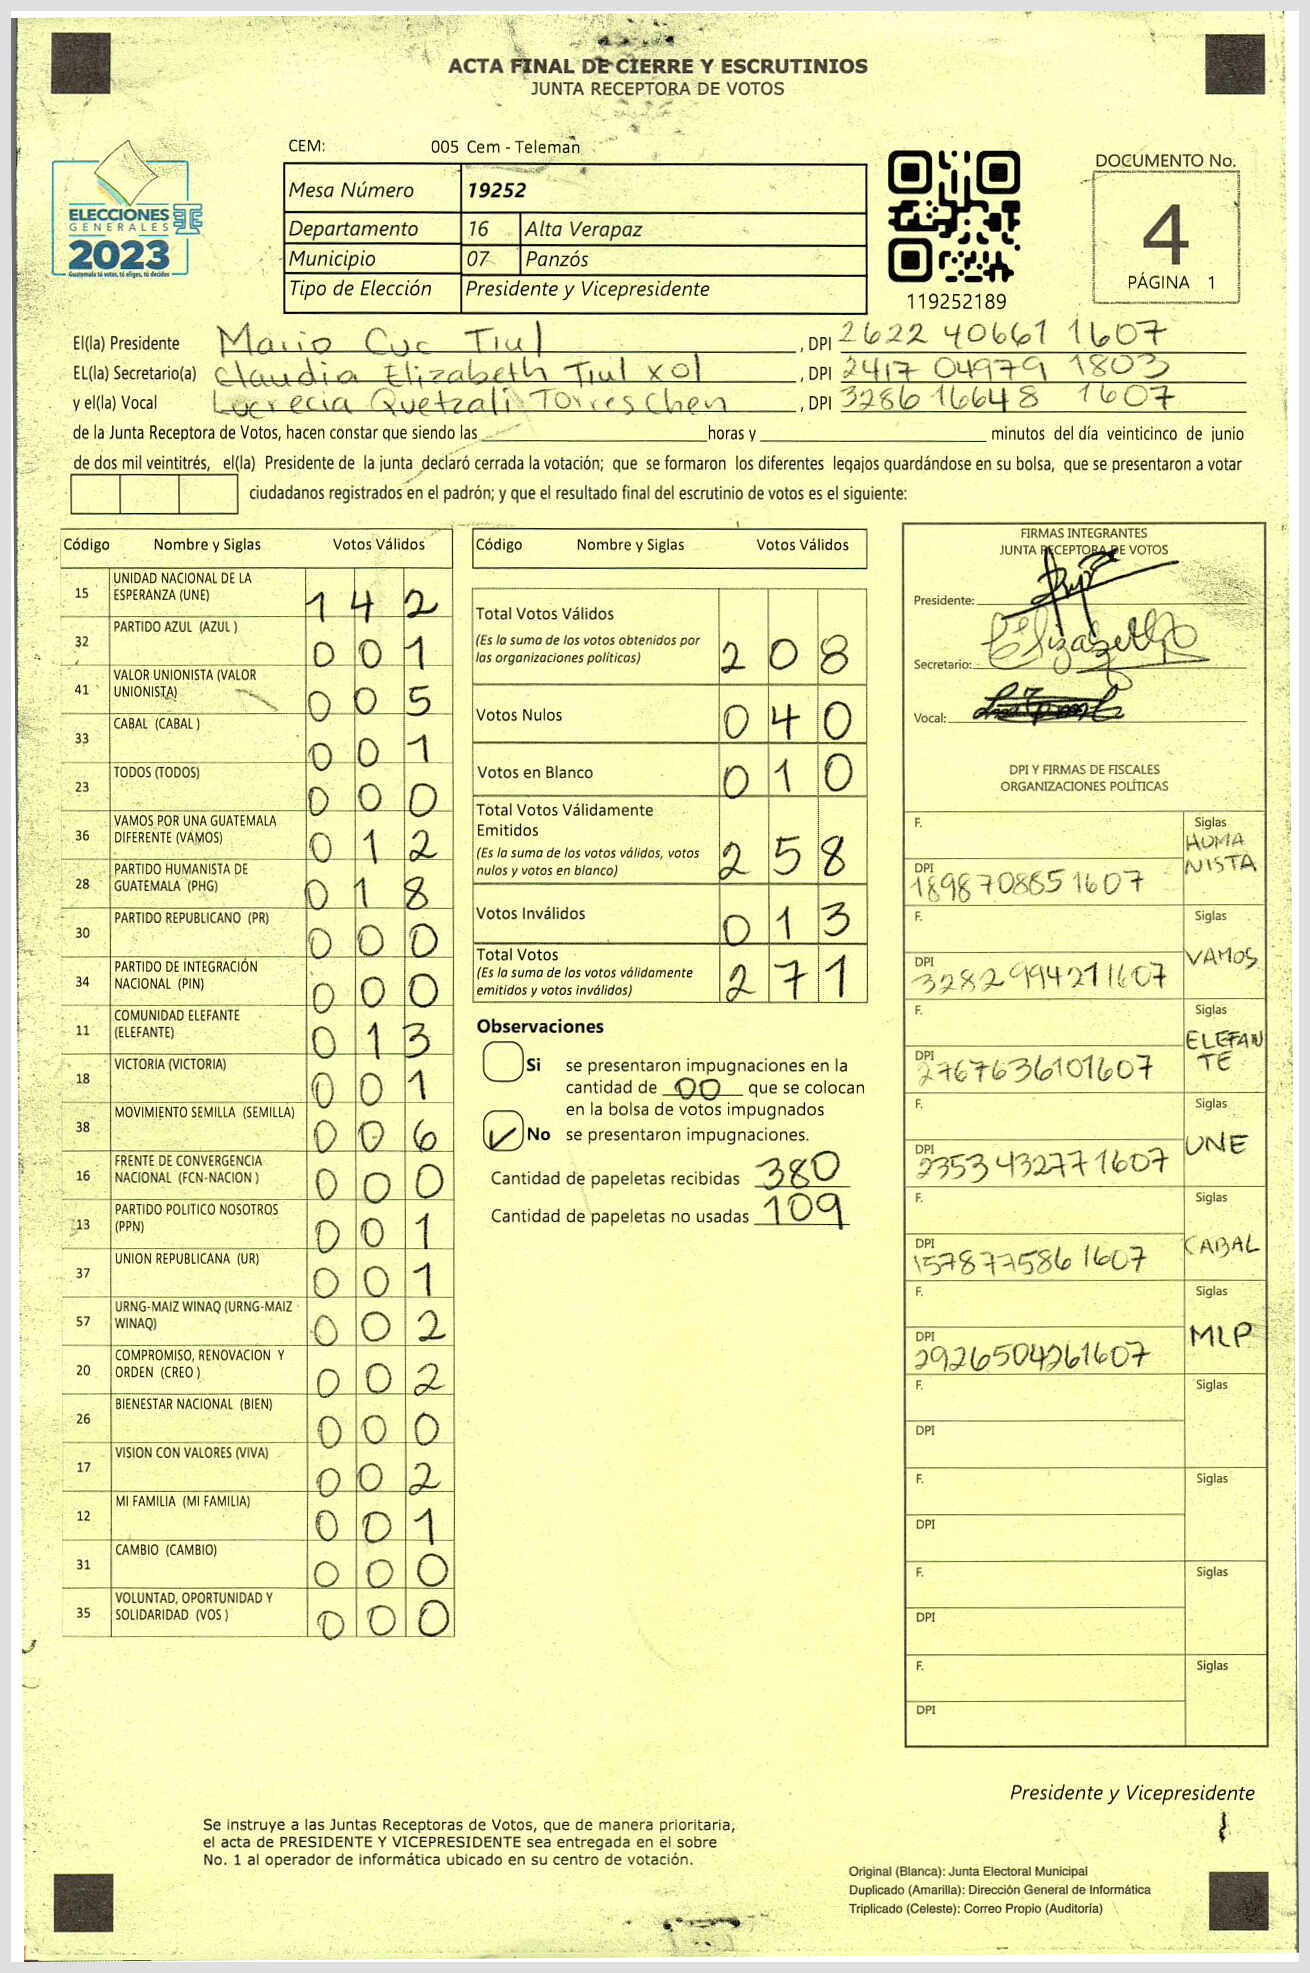 ACTA FINAL DE CIERRE Y ESCRUTINIOS
JUNTA RECEPTORA DE VOTOS
CEM: 005 Cem - Teleman
ELECCIONES
GENERALES
2023
Guatemala tú votas, tú eliges, tú decides
Mesa Número 19252
Departamento 16 Alta Verapaz
Municipio 07 Panzós
Tipo de Elección Presidente y Vicepresidente
119252189
DOCUMENTO No.
4
PÁGINA 1
El(la) Presidente Mario Cuc Tiul , DPI 2622 40661 1607
EL(la) Secretario(a) Claudia Elizabeth Tiul xol , DPI 2417 04979 1803
y el(la) Vocal Lucrecia Quetzali Torres Chen , DPI 3286 16648 1607
de la Junta Receptora de Votos, hacen constar que siendo las horas y minutos del día veinticinco de junio
de dos mil veintitrés, el(la) Presidente de la junta declaró cerrada la votación; que se formaron los diferentes legajos guardándose en su bolsa, que se presentaron a votar
ciudadanos registrados en el padrón; y que el resultado final del escrutinio de votos es el siguiente:
Código Nombre y Siglas Votos Válidos
15 UNIDAD NACIONAL DE LA ESPERANZA (UNE) 1 4 2
32 PARTIDO AZUL (AZUL ) 0 0 1
41 VALOR UNIONISTA (VALOR UNIONISTA) 0 0 5
33 CABAL (CABAL ) 0 0 1
23 TODOS (TODOS) 0 0 0
36 VAMOS POR UNA GUATEMALA DIFERENTE (VAMOS) 0 1 2
28 PARTIDO HUMANISTA DE GUATEMALA (PHG) 0 1 8
30 PARTIDO REPUBLICANO (PR) 0 0 0
34 PARTIDO DE INTEGRACIÓN NACIONAL (PIN) 0 0 0
11 COMUNIDAD ELEFANTE (ELEFANTE) 0 1 3
18 VICTORIA (VICTORIA) 0 0 1
38 MOVIMIENTO SEMILLA (SEMILLA) 0 0 6
16 FRENTE DE CONVERGENCIA NACIONAL (FCN-NACION ) 0 0 0
13 PARTIDO POLITICO NOSOTROS (PPN) 0 0 1
37 UNION REPUBLICANA (UR) 0 0 1
57 URNG-MAIZ WINAQ (URNG-MAIZ WINAQ) 0 0 2
20 COMPROMISO, RENOVACION Y ORDEN (CREO ) 0 0 2
26 BIENESTAR NACIONAL (BIEN) 0 0 0
17 VISION CON VALORES (VIVA) 0 0 2
12 MI FAMILIA (MI FAMILIA) 0 0 1
31 CAMBIO (CAMBIO) 0 0 0
35 VOLUNTAD, OPORTUNIDAD Y SOLIDARIDAD (VOS ) 0 0 0
Código Nombre y Siglas Votos Válidos
Total Votos Válidos 2 0 8
(Es la suma de los votos obtenidos por
las organizaciones políticas)
Votos Nulos 0 4 0
Votos en Blanco 0 1 0
Total Votos Válidamente
Emitidos 2 5 8
(Es la suma de los votos válidos, votos
nulos y votos en blanco)
Votos Inválidos 0 1 3
Total Votos 2 7 1
(Es la suma de los votos válidamente
emitidos y votos inválidos)
Observaciones
Si se presentaron impugnaciones en la
cantidad de 00 que se colocan
en la bolsa de votos impugnados
No se presentaron impugnaciones.
Cantidad de papeletas recibidas 380
Cantidad de papeletas no usadas 109
FIRMAS INTEGRANTES
JUNTA RECEPTORA DE VOTOS
Presidente:
Secretario: Elizabeth
Vocal:
DPI Y FIRMAS DE FISCALES
ORGANIZACIONES POLÍTICAS
F. Siglas HUMANISTA
DPI 1898708651607
F. Siglas VAMOS
DPI 3282994271607
F. Siglas ELEFANTE
DPI 2767636101607
F. Siglas UNE
DPI 2353432771607
F. Siglas CABAL
DPI 1578775861607
F. Siglas MLP
DPI 2926504261607
F. Siglas
DPI
F. Siglas
DPI
F. Siglas
DPI
F. Siglas
DPI
Presidente y Vicepresidente
Se instruye a las Juntas Receptoras de Votos, que de manera prioritaria,
el acta de PRESIDENTE Y VICEPRESIDENTE sea entregada en el sobre
No. 1 al operador de informática ubicado en su centro de votación.
Original (Blanca): Junta Electoral Municipal
Duplicado (Amarilla): Dirección General de Informática
Triplicado (Celeste): Correo Propio (Auditoría)